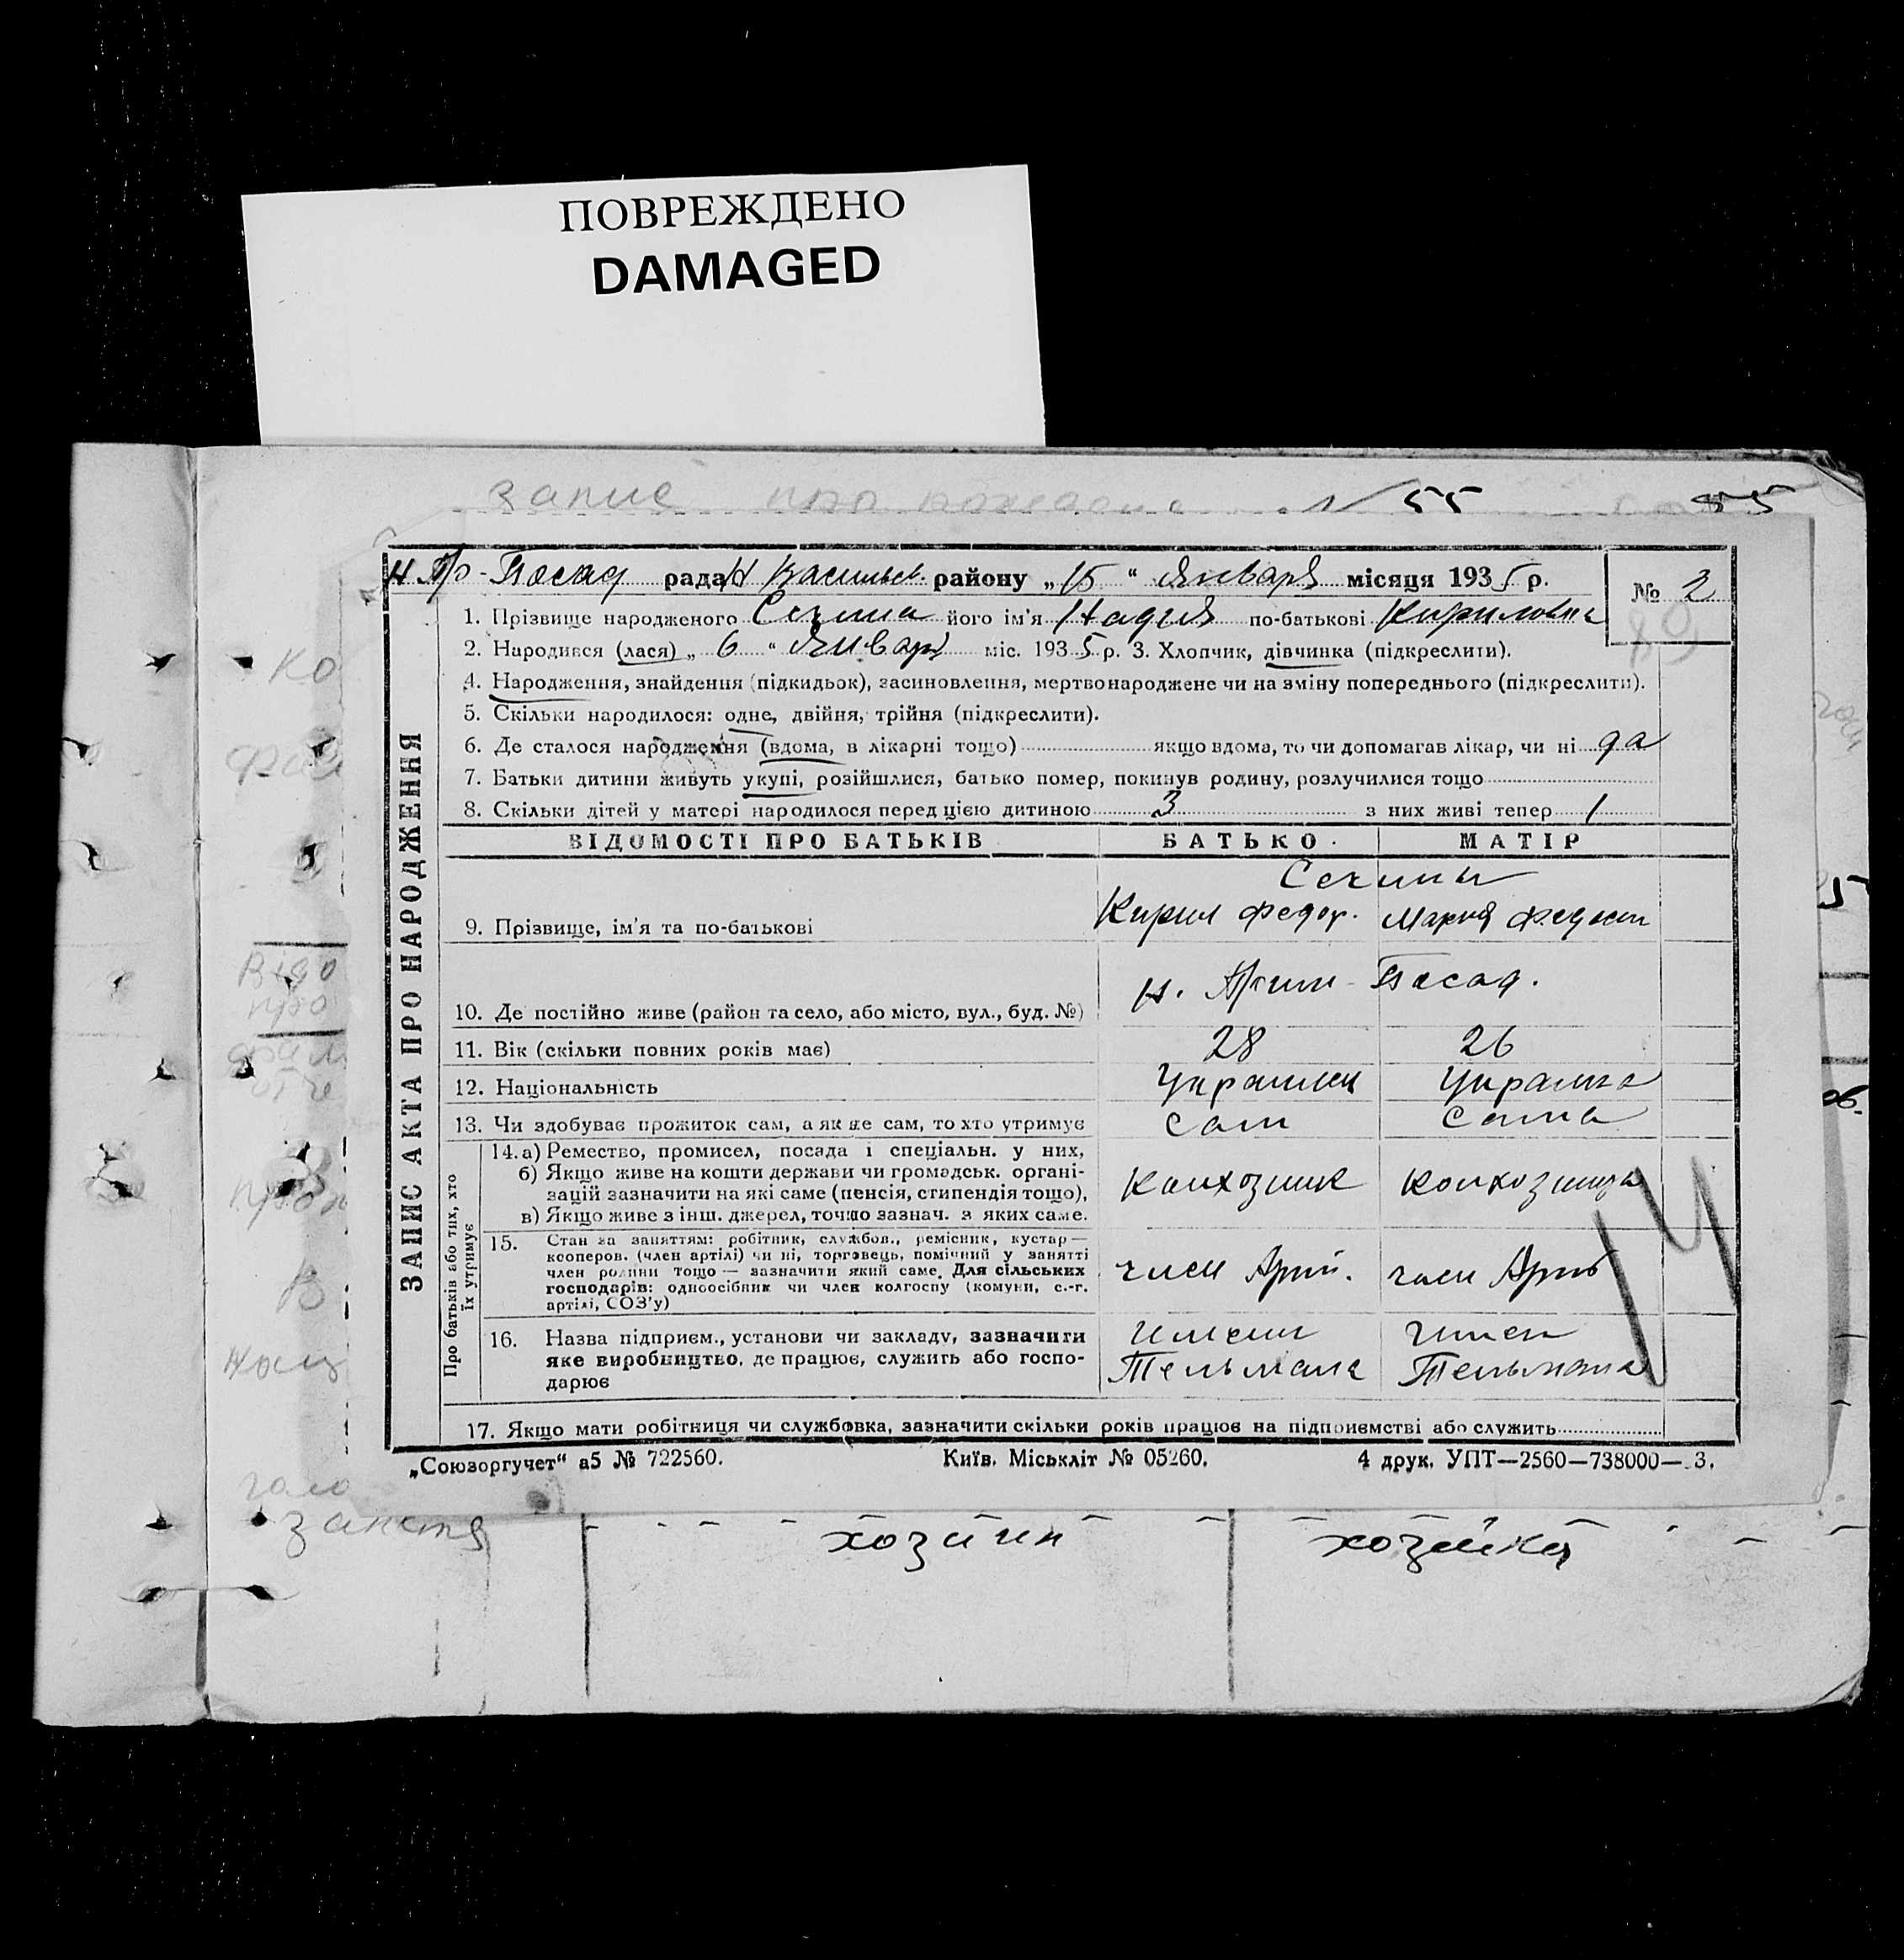 ПОВРЕЖДЕНО
DAMAGED
запис про 55 55
Н Пр-Посад рада Н Васильев. району „15“ Января місяця 1935 р. № 2
1. Прізвище народженого його ім'я Надия по-батькові Кириловна
2. Народився (лася) „6“ Января міс. 1935 р. 3. Хлопчик, дівчинка (підкреслити).
4. Народження, знайдення (підкидьок), засиновлення, мертвонароджене чи на зміну попереднього (підкреслити).
5. Скільки народилося: одне, двійня, трійня (підкреслити).
6. Де сталося народження (вдома, в лікарні тощо) якщо вдома, то чи допомагав лікар, чи ні да
7. Батьки дитини живуть укупі, розійшлися, батько помер, покинув родину, розлучилися тощо
8. Скільки дітей у матері народилося перед цією дитиною 3 з них живі тепер 1
ЗАПИС АКТА ПРО НАРОДЖЕННЯ
ВІДОМОСТІ ПРО БАТЬКІВ БАТЬКО МАТІР
9. Прізвище, ім'я та по-батькові Кирил Федор. Мария
10. Де постійно живе (район та село, або місто, вул., буд. №) Н. Посад.
11. Вік (скільки повних років має) 28 26
12. Національність Украинец Украинка
13. Чи здобуває прожиток сам, а як не сам, то хто утримує сам сама
Про батьків або тих, хто їх утримує
14. а) Ремество, промисел, посада і спеціальн. у них,
б) Якщо живе на кошти держави чи громадськ. органі-
зацій зазначити на які саме (пенсія, стипендія тощо),
в) Якщо живе з інш. джерел, точно зазнач. з яких саме.
колхозник колхозница
15. Стан за заняттям: робітник, службов., ремісник, кустар—
кооперов. (член артілі) чи ні, торговець, помічний у занятті
член родини тощо — зазначити який саме. Для сільських
господарів: одноосібник чи член колгоспу (комуни, с.-г.
артілі, СОЗ'у)
член Арт. член Арт
16. Назва підприєм., установи чи закладу, зазначити
яке виробництво, де працює, служить або госпо-
дарює
имени имен
Тельмана Тельмана
17. Якщо мати робітниця чи службовка, зазначити скільки років працює на підприємстві або служить
„Союзоргучет“ а5 № 722560. Київ. Міськліт № 05260. 4 друк. УПТ—2560—738000— 3.
заняття хозаин хозайка